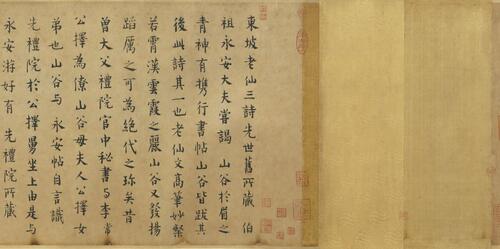 東坡老仙三詩先世舊所藏伯
祖永安大夫嘗謁山谷於眉之
青神有攜行書帖山谷皆跋其
後此詩其一也老仙文高筆妙粲
若霄漢雲霞之麗山谷又發揚
蹈厲之可為絕代之珍矣昔
曾大父禮院官中秘書與李常
公擇為僚山谷母夫人公擇女
弟也山谷與永安帖自言識
先禮院於公擇舅坐上由是與
永安游好有先禮院所藏